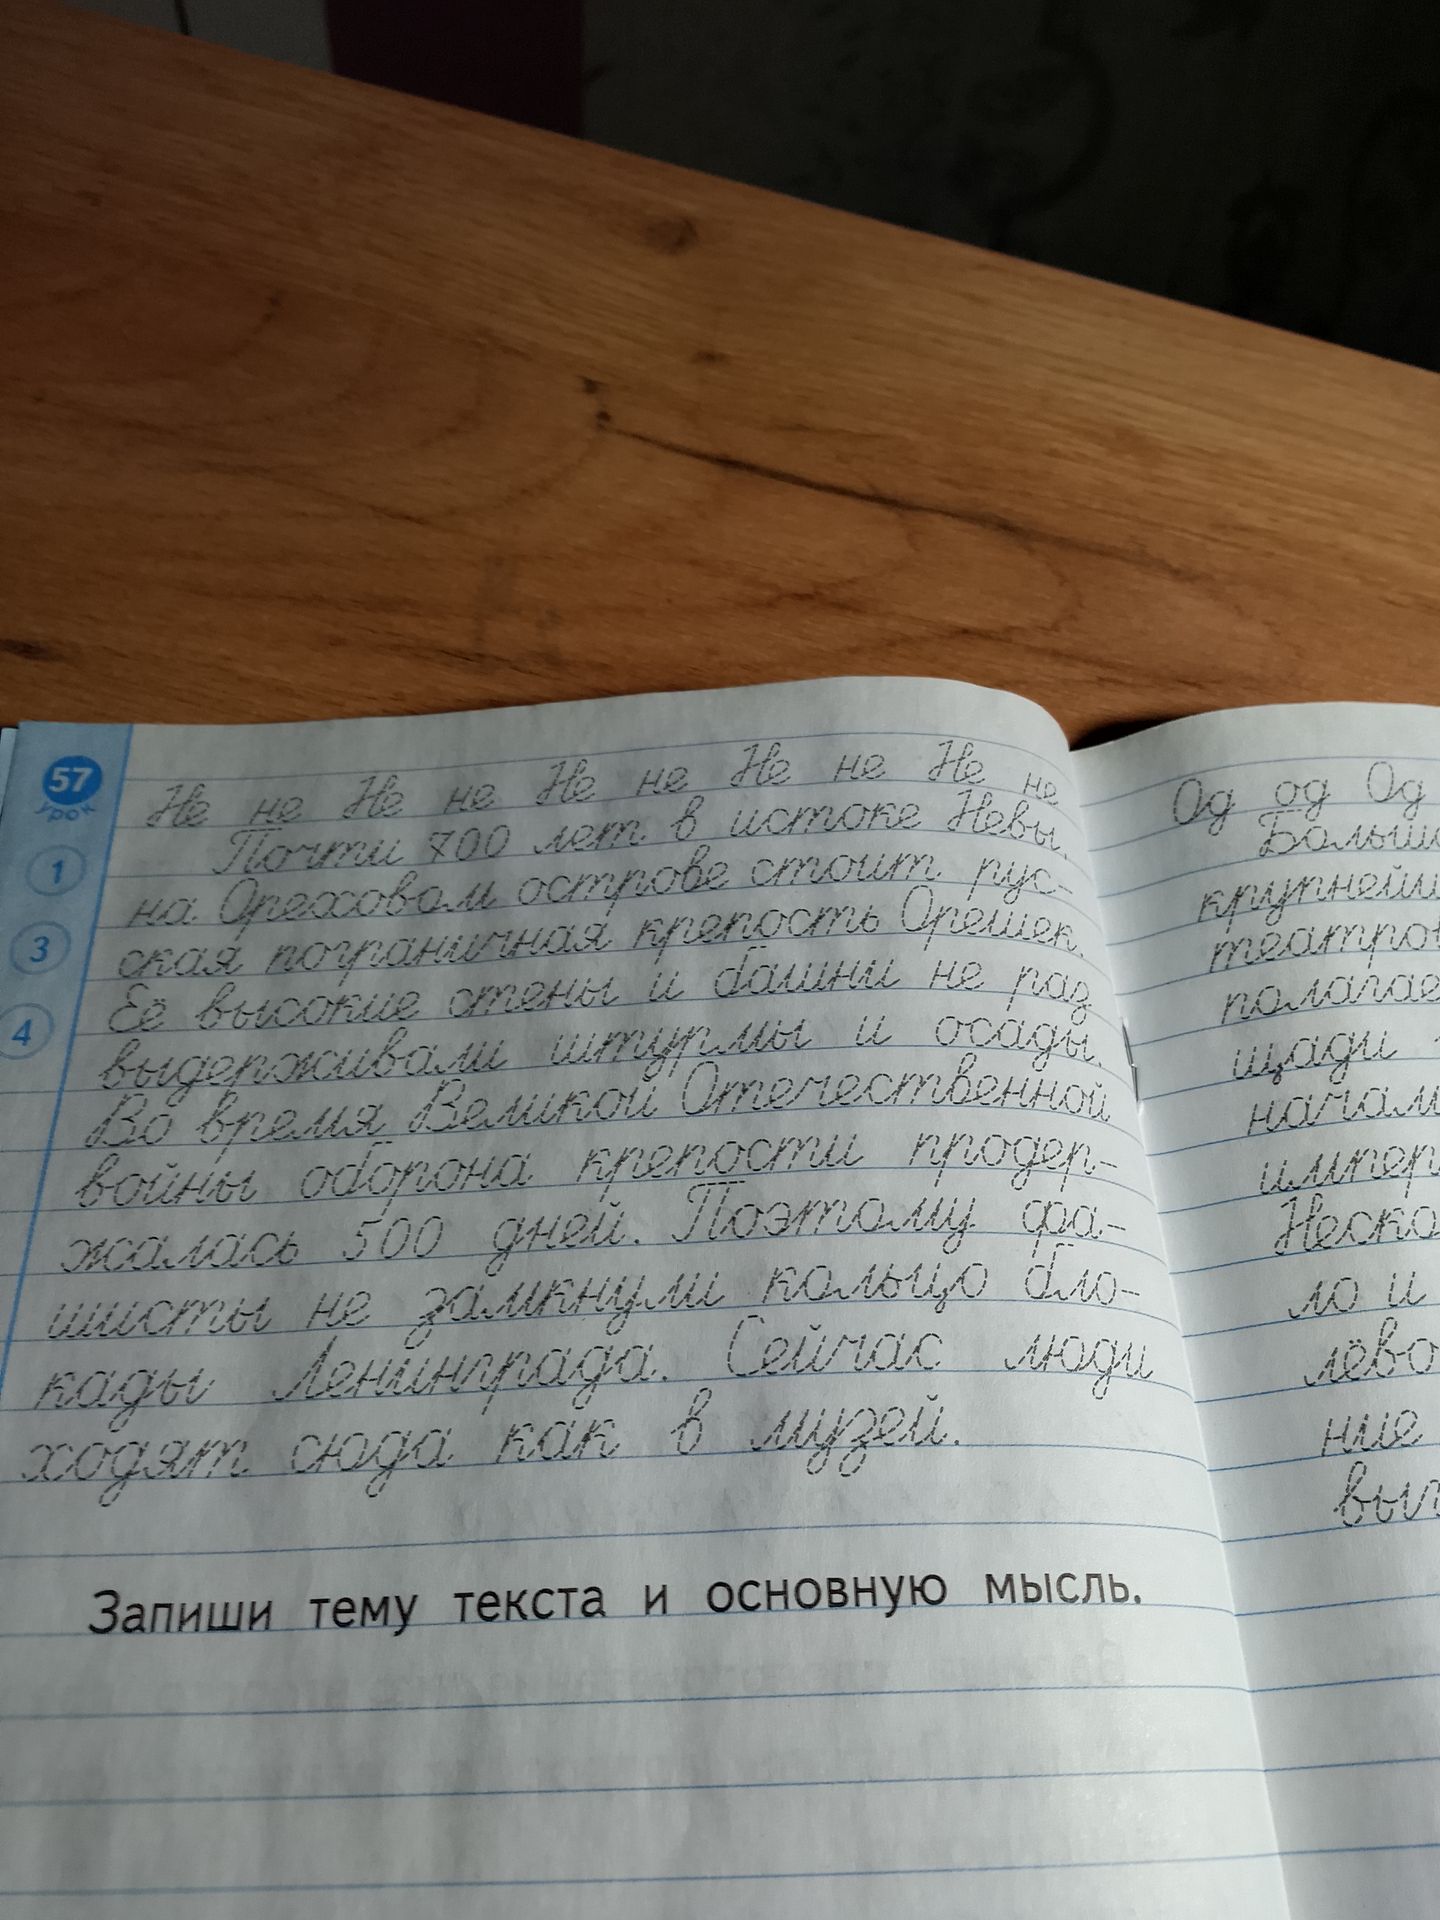 57
урок
1
3
4
Не не Не не Не не Не не Не не
Почти 700 лет в истоке Невы
на Ореховом острове стоит рус-
ская пограничная крепость Орешек.
Её высокие стены и башни не раз
выдерживали штурмы и осады.
Во время Великой Отечественной
войны оборона крепости продер-
жалась 500 дней. Поэтому фа-
шисты не замкнули кольцо бло-
кады Ленинграда. Сейчас люди
ходят сюда как в музей.
Запиши тему текста и основную мысль.
Од од Од
крупнейш
театров
полагае
щади
начал
импер
Неско
ло и
лёво
ние